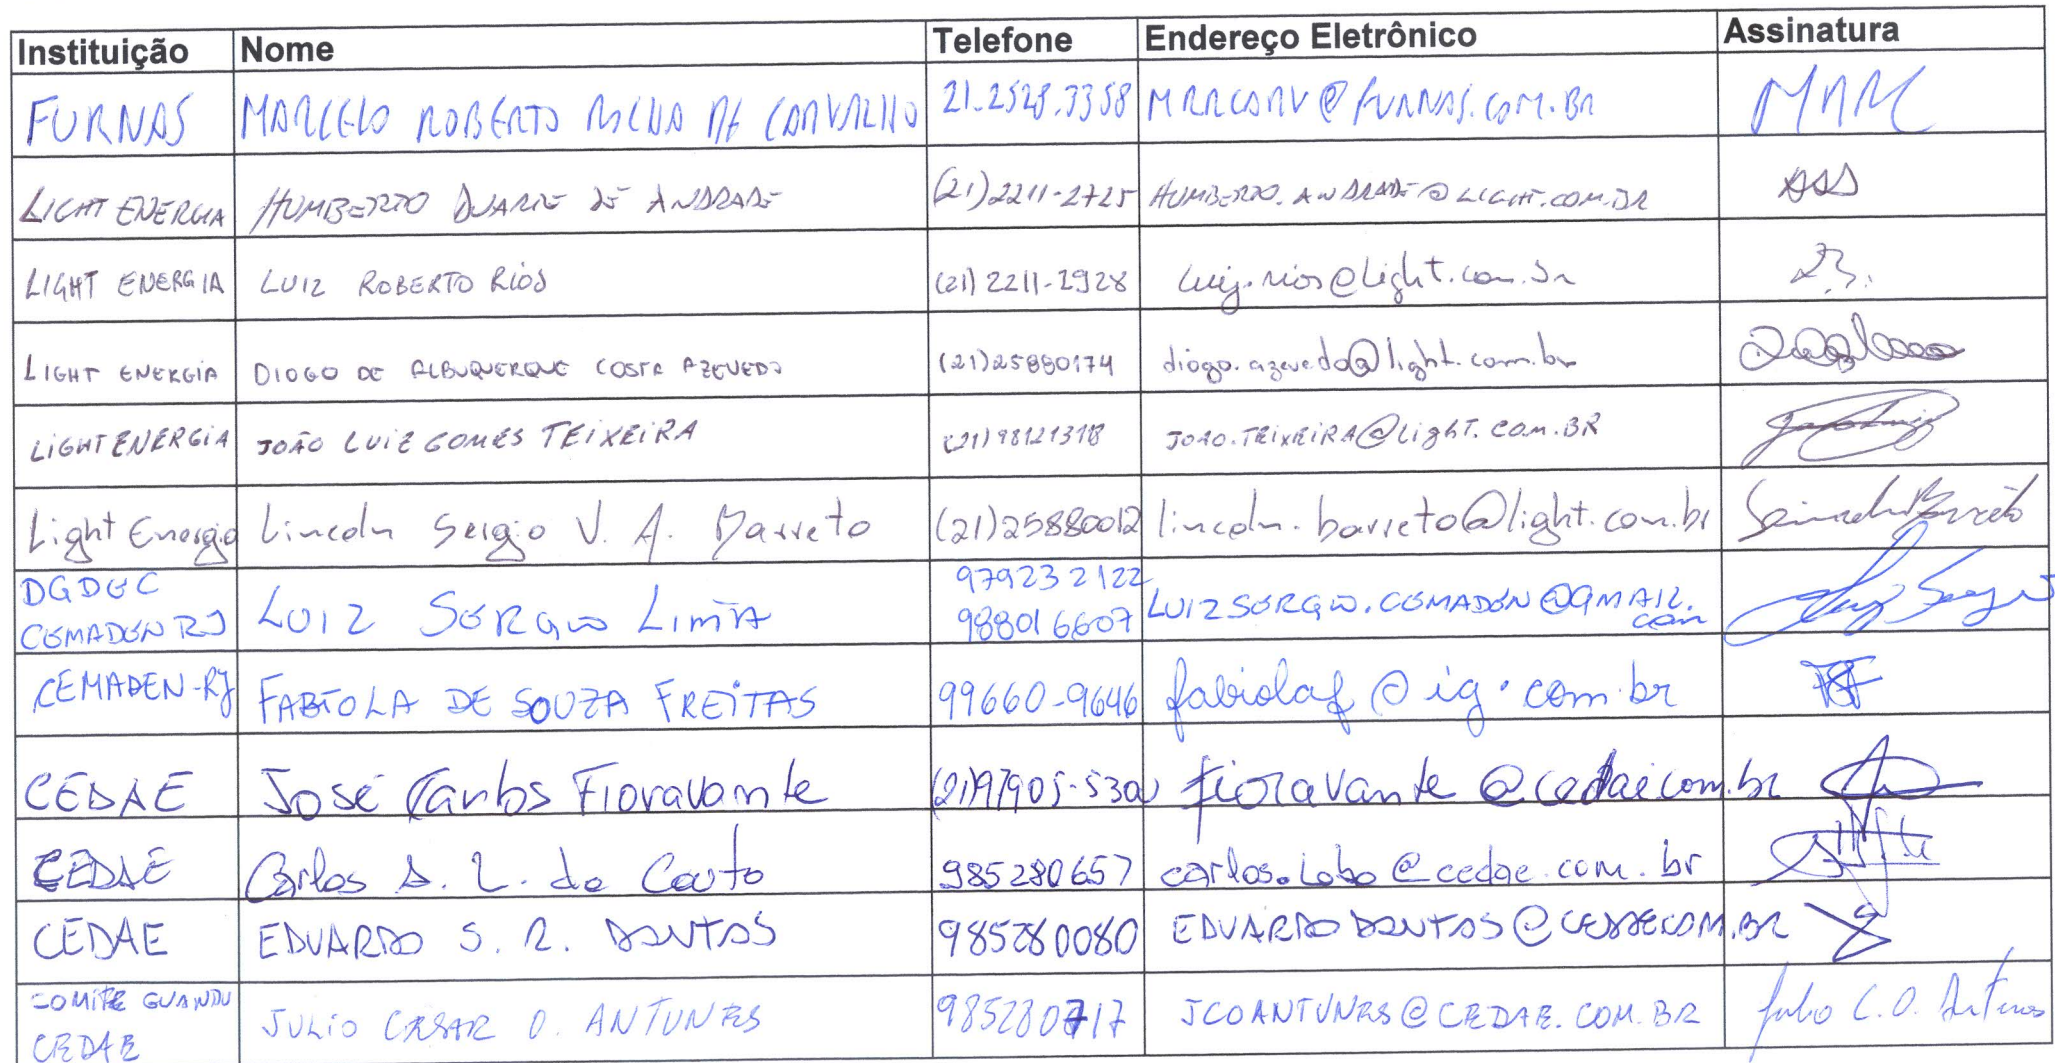 Instituição Nome Telefone Endereço Eletrônico Assinatura
FURNAS MARCELO ROBERTO ROCHA DE CARVALHO 21.2528.3358 MRRCARV@FURNAS.COM.BR
LIGHT ENERGIA HUMBERTO DUARTE DE ANDRADE (21)2211-2725 HUMBERTO.ANDRADE@LIGHT.COM.BR
LIGHT ENERGIA LUIZ ROBERTO RIOS (21)2211-2928 luiz.rios@light.com.br
LIGHT ENERGIA DIOGO DE ALBUQUERQUE COSTA AZEVEDO (21)25880174 diogo.azevedo@light.com.br
LIGHT ENERGIA JOÃO LUIZ GOMES TEIXEIRA JOAO.TEIXEIRA@LIGHT.COM.BR
Light Energia Lincoln Sergio V. A. Barreto (21)25880012 lincoln.barreto@light.com.br
DGDEC CEMADEN RJ LUIZ SERGIO LIMA 979232122 988016607 LUIZSERGIO.CEMADEN@GMAIL.com
CEMADEN-RJ FABIOLA DE SOUZA FREITAS 99660-9646 fabiolaf@ig.com.br
CEDAE José Carlos Fioravante fioravante@cedae.com.br
CEDAE Carlos A. L. do Couto 985280657 carlos.lobo@cedae.com.br
CEDAE EDUARDO S. R. DANTAS 985280080 EDUARDODANTAS@CEDAE.COM.BR
COMITE GUANDU CEDAE JULIO CESAR O. ANTUNES 985280717 JCOANTUNES@CEDAE.COM.BR Julio C.O. Antunes